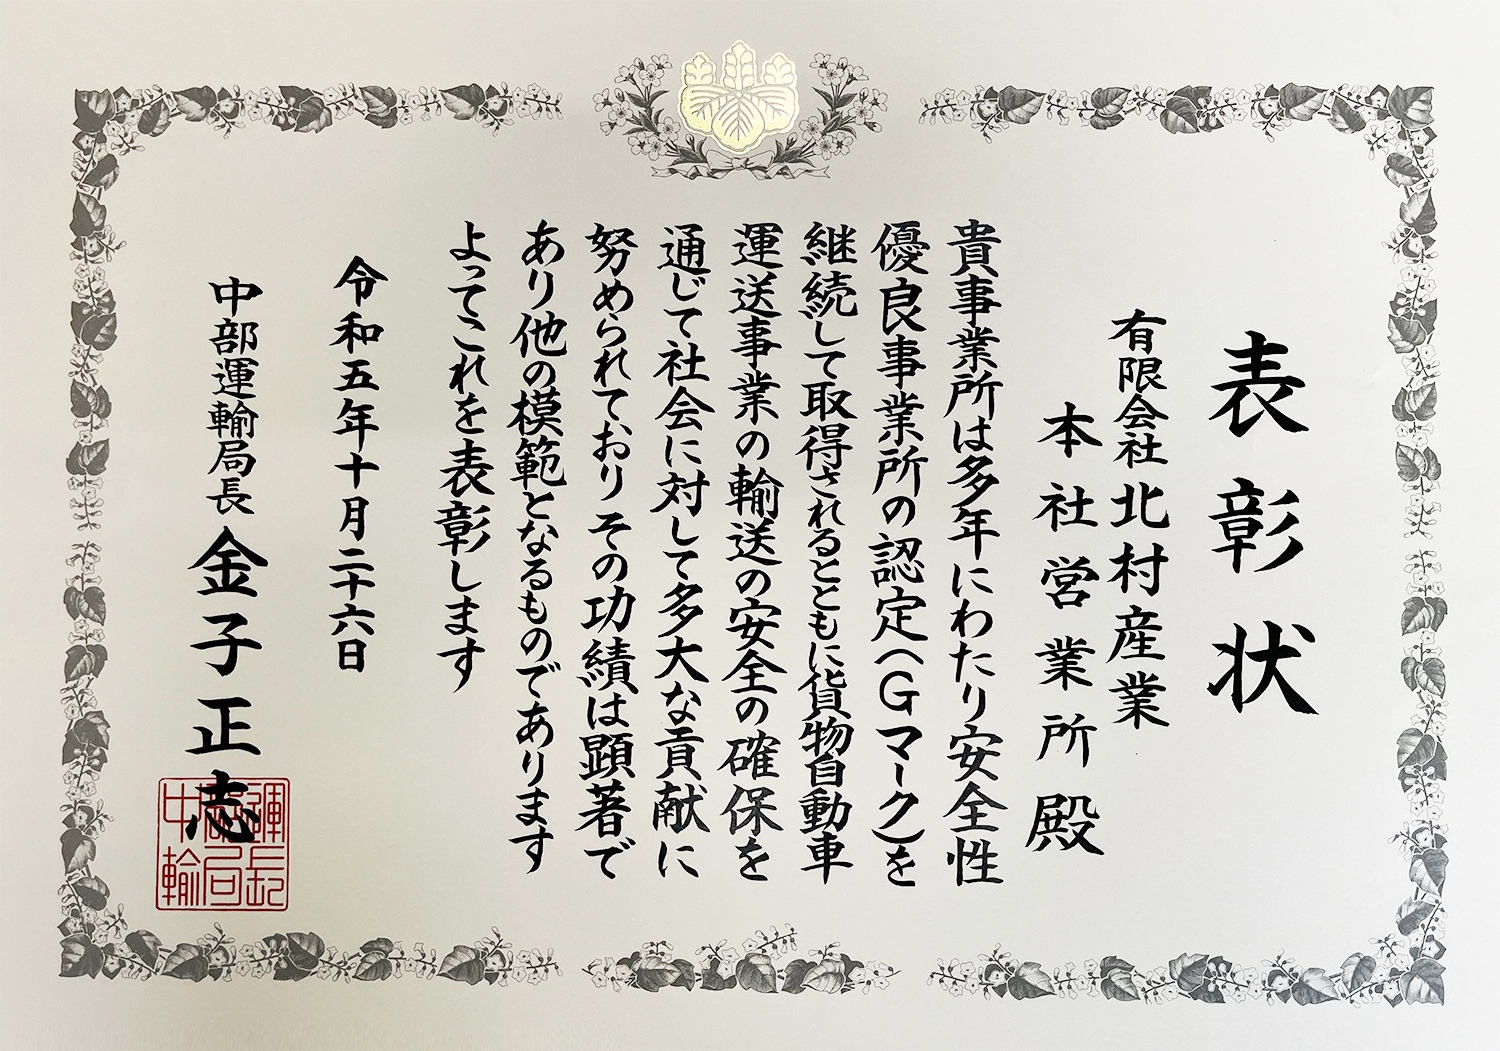 表彰状
有限会社北村産業
本社営業所殿
貴事業所は多年にわたり安全性
優良事業所の認定(Gマーク)を
継続して取得されるとともに貨物自動車
運送事業の輸送の安全の確保を
通じて社会に対して多大な貢献に
努められておりその功績は顕著で
あり他の模範となるものであります
よってこれを表彰します
令和五年十月二十六日
中部運輸局長 金子正志